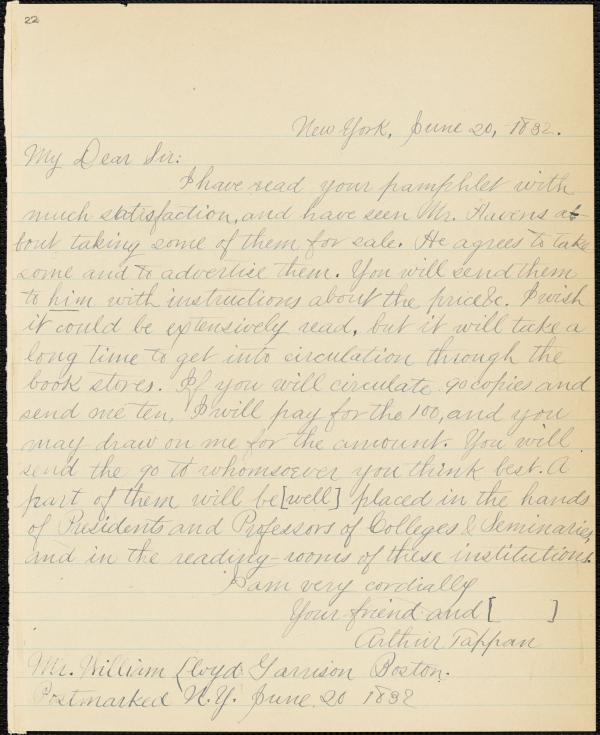 22
New York, June 20, 1832.
My Dear Sir:
I have read your pamphlet with
much satisfaction, and have seen Mr. Havens a-
bout taking some of them for sale. He agrees to take
some and to advertise them. You will send them
to him with instructions about the price &c. I wish
it could be extensively read, but it will take a
long time to get into circulation through the
book stores. If you will circulate 90 copies and
send me ten, I will pay for the 100, and you
may draw on me for the amount. You will
send the 90 to whomsoever you think best. A
part of them will be [well] placed in the hands
of Presidents and Professors of Colleges & Seminaries,
and in the reading-rooms of these institutions.
I am very cordially
Your friend and [ ]
Arthur Tappan
Mr. William Lloyd Garrison Boston.
Postmarked N.Y. June 20 1832